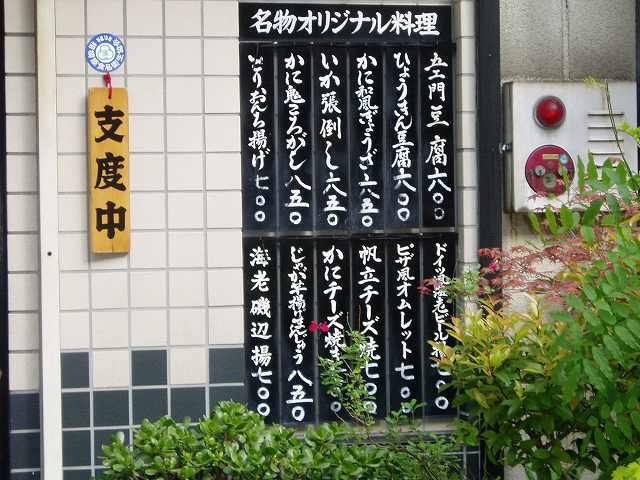 名物オリジナル料理
五ェ門豆腐六〇〇
ひょうきん豆腐六〇〇
かに和風ぎょうざ六八五〇
いか張倒し六五〇
かに鬼ころがし八五〇
ごりおんち揚げ七〇〇
ドイツ風海老ビール揚七〇〇
ピザ風オムレット七〇〇
帆立チーズ焼七〇〇
かにチーズ焼
じゃが芋揚げまんじゅう八五〇
海老磯辺揚七〇〇
支度中